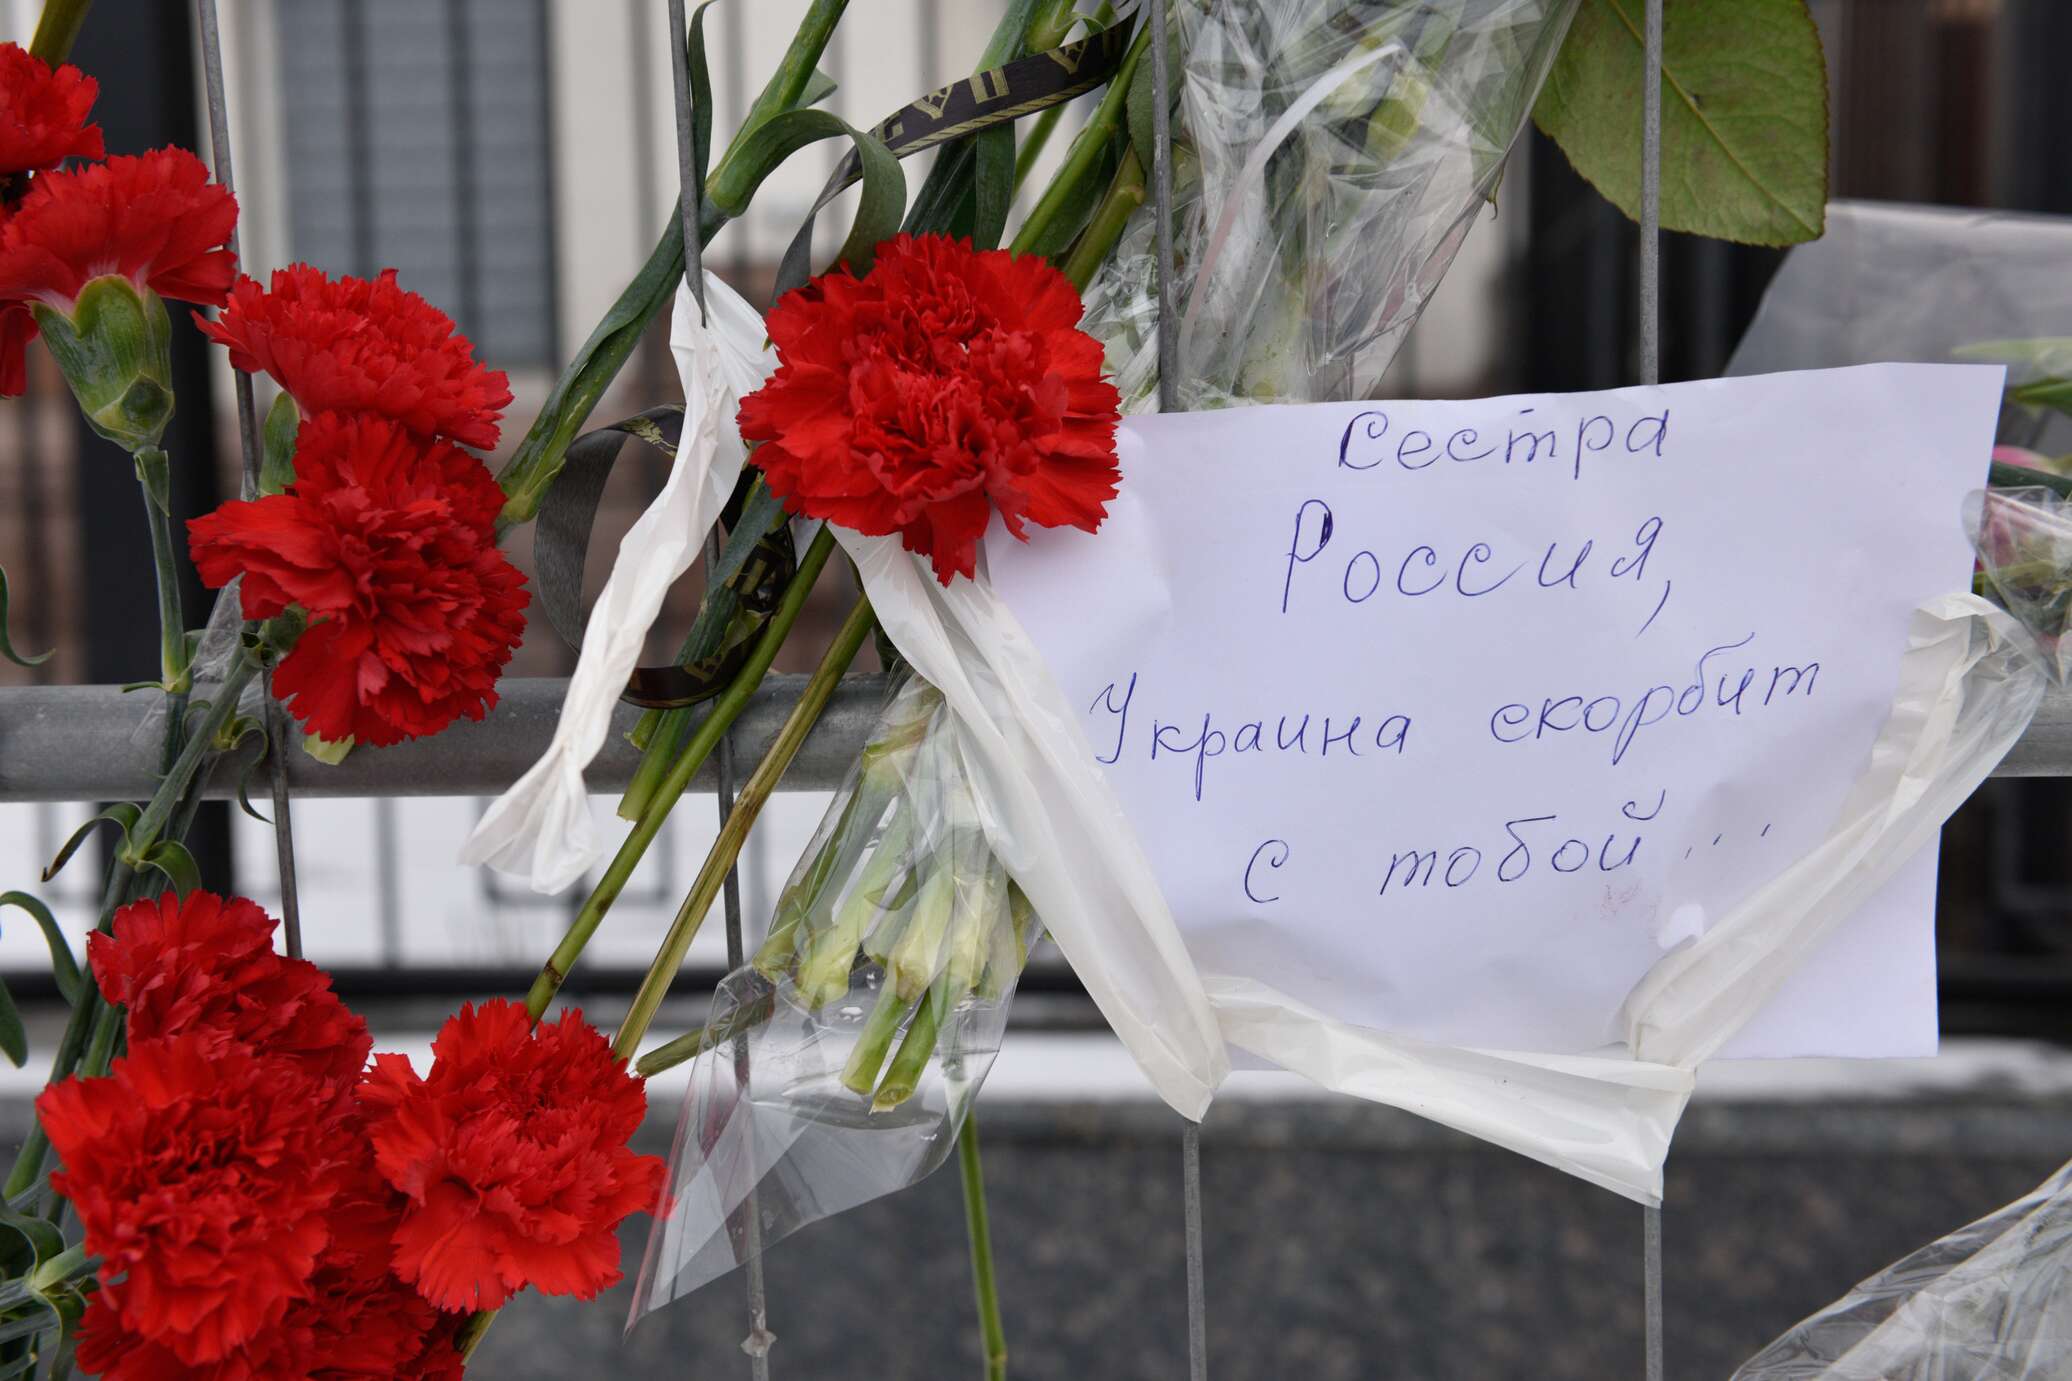 Сестра
Россия,
Украина скорбит
с тобой...